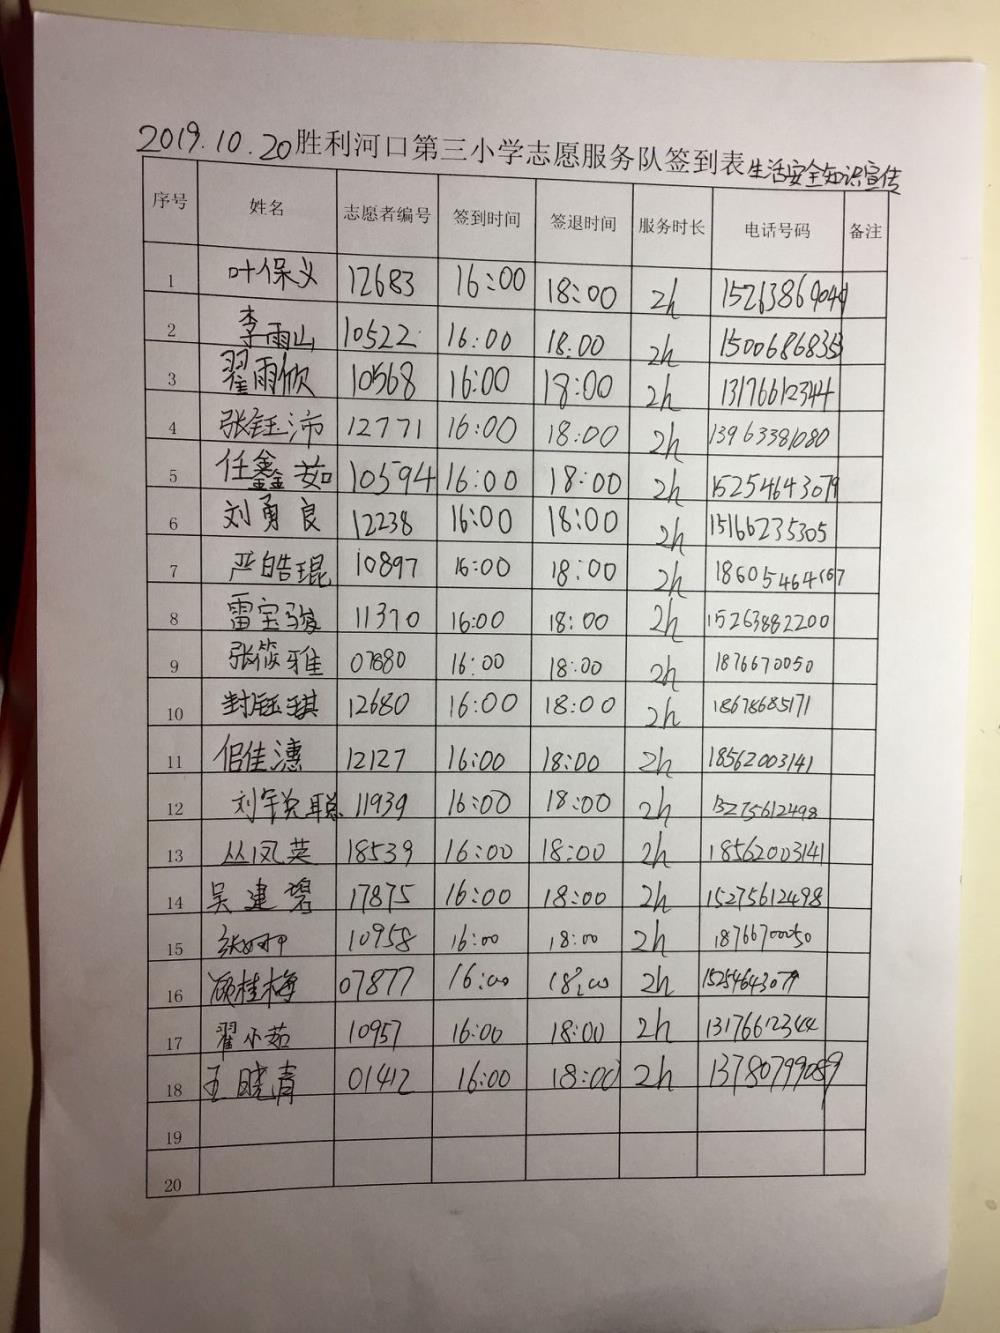 2019.10.20胜利河口第三小学志愿服务队签到表生活安全知识宣传
序号 姓名 志愿者编号 签到时间 签退时间 服务时长 电话号码 备注
1 叶保义 12683 16:00 18:00 2h 15263869049
2 李雨山 10522 16:00 18:00 2h 15006868353
3 翟雨欣 10568 16:00 18:00 2h 13176612344
4 张钰沛 12771 16:00 18:00 2h 13963381080
5 任鑫茹 10594 16:00 18:00 2h 15254643079
6 刘勇良 12238 16:00 18:00 2h 15166235305
7 严皓琨 10897 16:00 18:00 2h 18605464167
8 雷宝骏 11370 16:00 18:00 2h 15263882200
9 张筱雅 07880 16:00 18:00 2h 1876670050
10 封钰琪 12680 16:00 18:00 2h 18678685171
11 侣佳潓 12127 16:00 18:00 2h 18562003141
12 11939 16:00 18:00 2h 15275612498
13 丛凤英 18539 16:00 18:00 2h 18562003141
14 吴建碧 17875 16:00 18:00 2h 15275612498
15 10958 16:00 18:00 2h 18766700050
16 顾桂梅 07877 16:00 18:00 2h 15254643079
17 翟小茹 10957 16:00 18:00 2h 13176612344
18 王晓青 01412 16:00 18:00 2h 13780799089
19
20